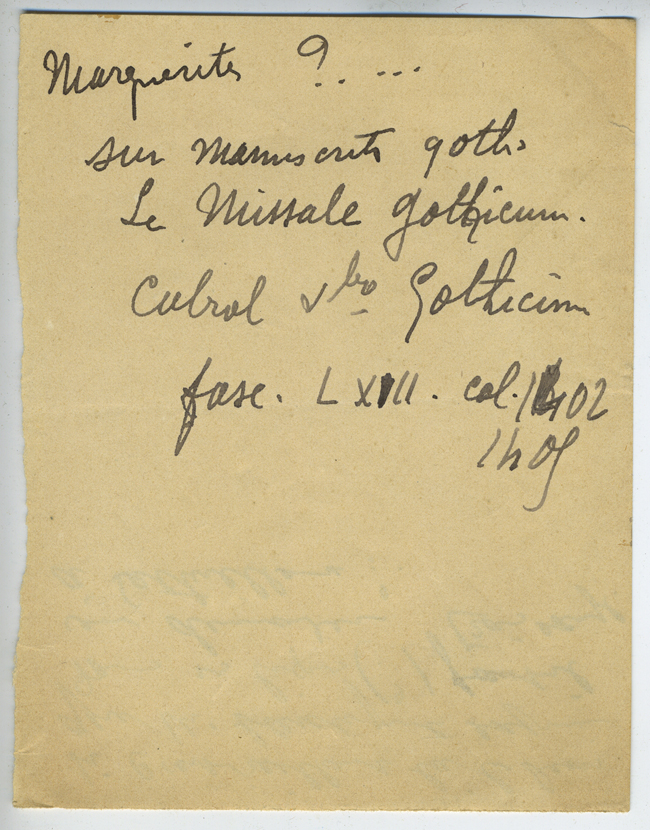 Marguerites ?. ...
sur manuscrits goth.
Le Missale gothicum.
Cabrol vbo Gothicum
fasc. LXIII. col. 1402
1405